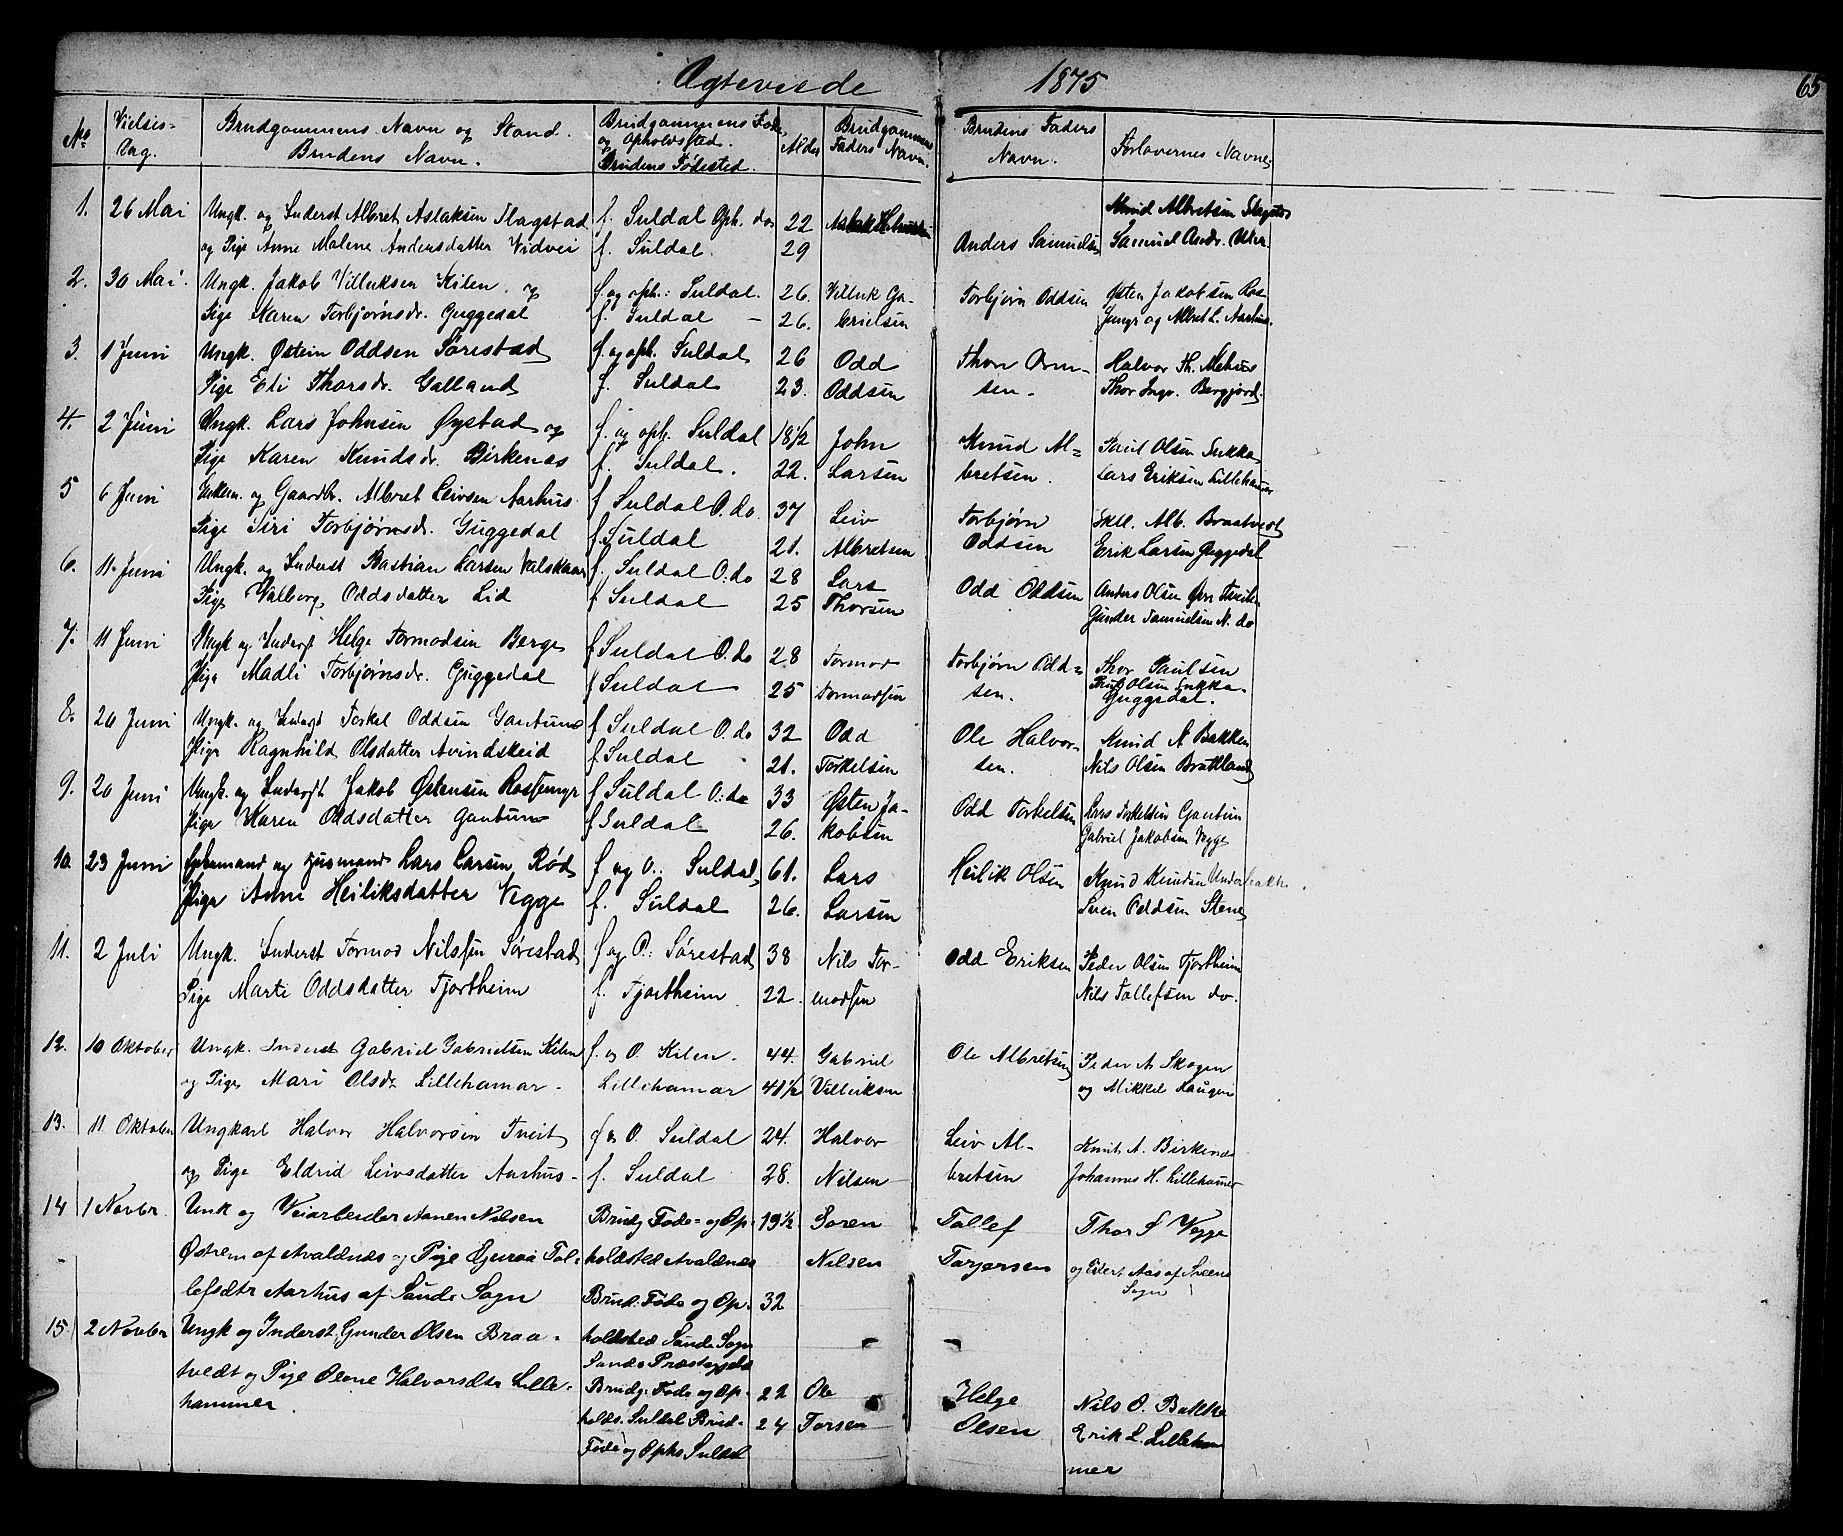 Ægteviede 1875 65
No Vielses- Dag. Brudgommens Navn og Stand. Brudens Navn. Brudgommens Føde og Opholdsted. Brudens Fødested. Alder Brudgommens Faders Navn. Brudens Faders Navn. Forlovernes Navne
1. 26 Mai Ungk. og Inderst Albret Aslaksen Flagstad f. Suldal Oph. do 22 Aslak Knud Albretsen
og Pige Anne Malene Andersdatter Vidvei f. Suldal. 29 Anders Samuelsen Samuel Andr.
2. 30 Mai. Ungk. Jakob Villeiksen Kilen og f. og oph: Suldal. 26. Villeik Ga- Torbjørn Oddsen Østen Jakobsen Ros-
Pige Karen Torbjørnsdr. Guggedal f. Suldal - 26. brielsen jungr og Albret L. Aarhus.
3. 1 Juni Ungk. Østein Oddsen Sørestad f. og oph. Suldal 26 Odd Thor Orm- Halvor Th. Mehus
Pige Eli Thorsdr. Galland f. Suldal 23. Oddsen sen. Thor Ingv. Bergjord.
4. 2 Juni Ungk. Lars Johnsen Øystad og f. og oph. Suldal 18½ John Knud Al= Poul Olsen Sukka
Pige Karen Knudsdr. Birkenæs f. Suldal. 22. Larsen bretsen. Lars Eriksen Lillehamar
5 6 Juni Enkem. og Gaardbr. Albret Leivsen Aarhus f Suldal O. do. 37 Leiv Torbjørn Alb. Braatveit
Pige Siri Torbjørnsdr. Guggedal f. Suldal 21. Albretsen Oddsen Erik Larsen Guggedal
6. 11. Juni Ungk. og Inderst Bastian Larsen Valskaar f. Suldal O. do 28 Lars Odd Oddsen Anders Olsen
Pige Valborg Oddsdatter Lid f Suldal 25 Thorsen Gunder Samuelsen N. do
7. 11 Juni Ungk og Inderst Helge Tormodsen Berge f Suldal O. do 28 Tormod Torbjørn Odd= Thor Paulsen
Pige Madli Torbjørnsdr. Guggedal f Suldal 25 Tormodsen sen. Poul Olsen Sukka-
Guggedal.
8. 20 Juni Ungk. og Inderst Torkel Oddsen Gautun f Suldal O. do 32 Odd Ole Halvor- Knud A Bakken
Pige Ragnhild Olsdatter Avindskeid f Suldal 21. Torkelsen sen. Nils Olsen Bratland
9. 20 Juni Ungk. og Inderst Jakob Østensen Rosjungr f Suldal O: do 33 Østen Ja- Odd Torkelsen Lars Torkelsen Gautun
Pige Karen Oddsdatter Gautun f Suldal 26. kobsen Gabriel Jakobsen Vegge
10. 23 Juni og Husmand Lars Larsen Rød f og O.: Suldal 61. Lars Heilik Olsen Knud Knudsen Underbakke
Pige Anne Heiliksdatter Vegge f. Suldal 26. Larsen Sven Oddsen Stene
11. 2 Juli Ungk. Inderst Tormod Nilssen Sørestad f og O: Sørestad 38 Nils Tor- Odd Eriksen Peder Olsen Fjortheim
Pige Marte Oddsdatter Fjortheim f. Fjortheim 22. modsen Nils Tollefsen do.
12. 10 Oktober Ungk. Inderst Gabriel Gabrielsen Kilen f. og O. Kilen. 44. Gabriel Ole Albretsen Peder A Skogen
og Pige Mari Olsdr Lillehamar - Lillehamar 41½ Villeiksen og Mikkel Haugen
13. 11 Oktober Ungkarl Halvor Halvorsen Tveit f og O. Suldal 24. Halvor Leiv Al- Knut A. Birkenæs
og Pige Eldrid Leivsdatter Aarhus- f. Suldal 28. Nilsen bretsen Johannes H. Lillehamer
14 1 Novbr. Unk og Veiarbeider Aanen Nilsen Brudg. Føde- og Op- 19½ Soren Tollef Thor S Vegge
Østrem af Avaldnæs og Pige Gjuroa Tol- holdsted Avaldnæs Nilsen Torjersen og Eilert Aas af Skeens
lefsdtr Aarhus af Sande Sogn Brud. Føde og Op- 32 Sogn
15 2 Novbr Ungk og Inderst Gunder Olsen Braa- holdsted Sande Sogn
Sande Præstegjeld
tvedt og Pige Olene Halvorsdtr Lille- Brudg. Føde og Op- 22 Ole Helge Nils O. Bakke
hammer. holds. Suldal Brud- 24 Torsen Olsen Erik L. Lilleham
Føde og Ophs Suldal mer